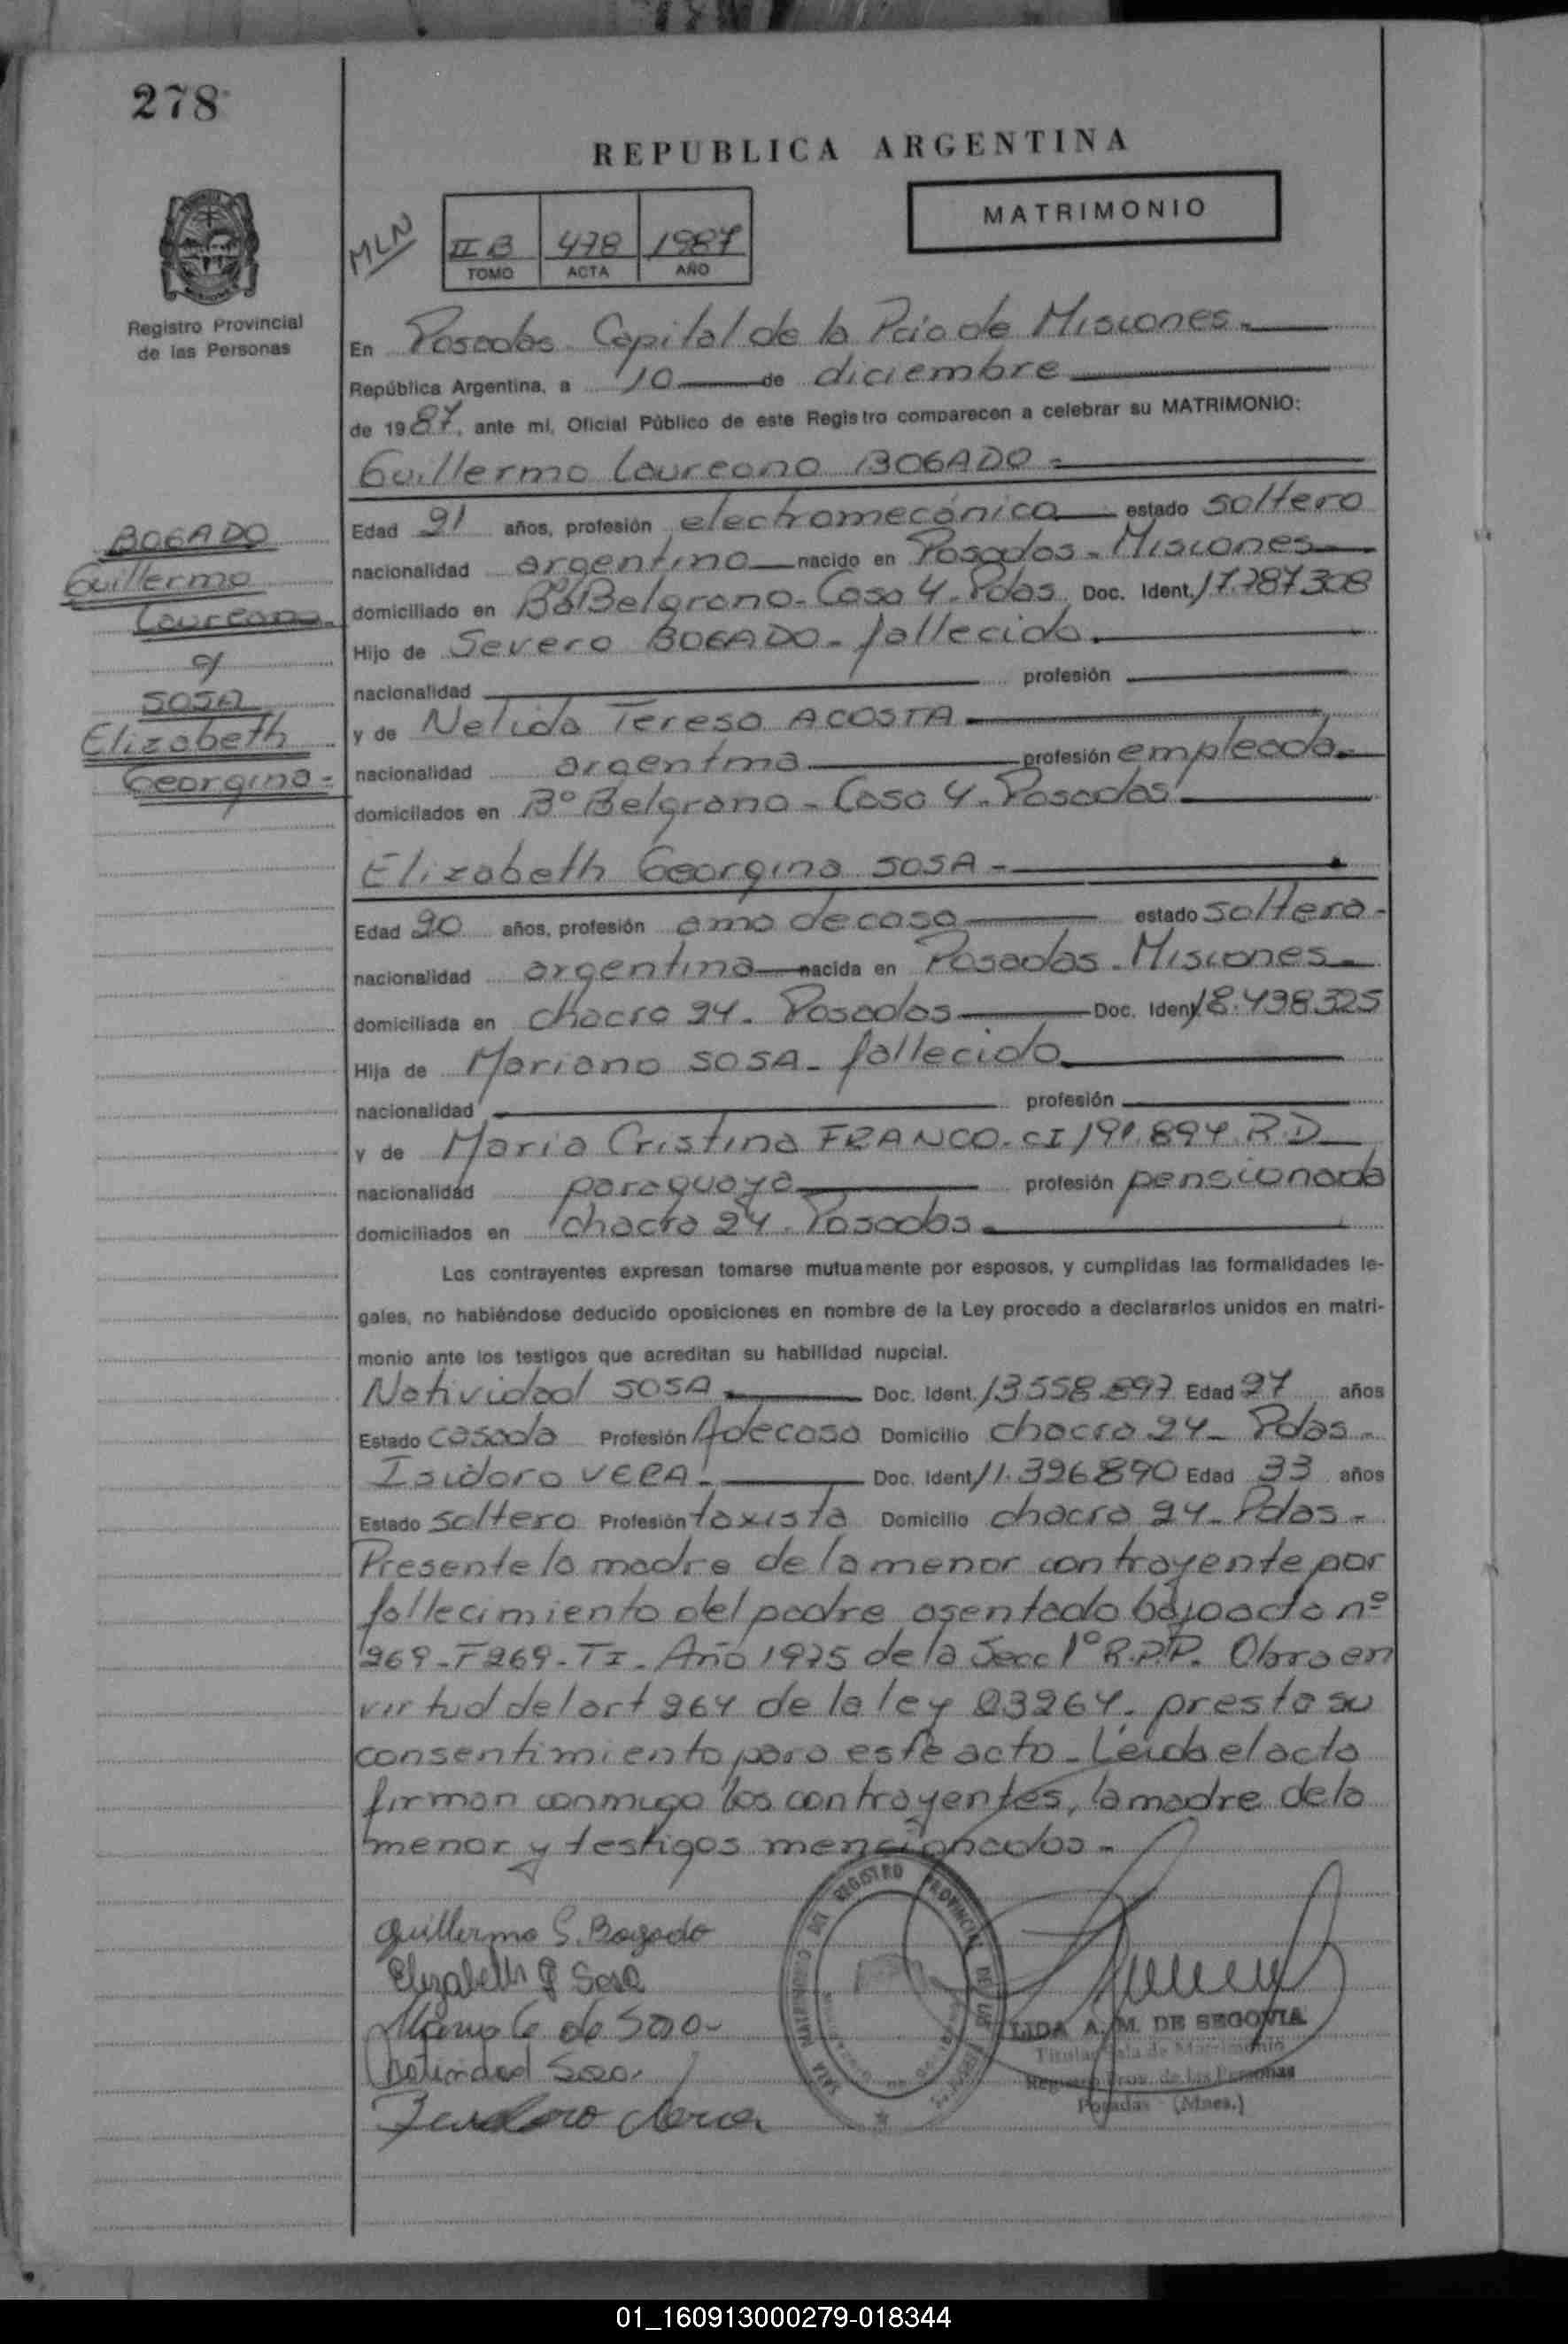 278
REPUBLICA ARGENTINA
MATRIMONIO
MLN
II B 478 1987
TOMO ACTA AÑO
Registro Provincial
de las Personas
En Posadas Capital de la Pcia de Misiones.
República Argentina, a 10 de diciembre
de 1987, ante mí, Oficial Público de este Registro comparecen a celebrar su MATRIMONIO:
Guillermo Laureano BOGADO
BOGADO
Guillermo
Laureano
c/
SOSA
Elizabeth
Georgina
Edad 21 años, profesión electromecánica estado soltero
nacionalidad argentino nacido en Posadas - Misiones
domiciliado en Bº Belgrano - Casa 4 - Pdas Doc. Ident. 17.787.308
Hijo de Severo BOGADO - fallecido
nacionalidad profesión
y de Nelida Teresa ACOSTA
nacionalidad argentina profesión empleada
domiciliados en Bº Belgrano - Casa 4 - Posadas
Elizabeth Georgina SOSA
Edad 20 años, profesión ama de casa estado soltera
nacionalidad argentina nacida en Posadas - Misiones
domiciliada en chacra 24 - Posadas Doc. Ident. 18.438.325
Hija de Mariano SOSA - fallecido
nacionalidad profesión
y de Maria Cristina FRANCO - CI 191.894 R.D
nacionalidad paraguaya profesión pensionada
domiciliados en chacra 24 - Posadas
Los contrayentes expresan tomarse mutuamente por esposos, y cumplidas las formalidades le-
gales, no habiéndose deducido oposiciones en nombre de la Ley procedo a declararlos unidos en matri-
monio ante los testigos que acreditan su habilidad nupcial.
Natividad SOSA Doc. Ident. 13.558.897 Edad 27 años
Estado casada Profesión A de casa Domicilio chacra 24 - Pdas
Isidoro VERA Doc. Ident. 11.396.890 Edad 33 años
Estado soltero Profesión taxista Domicilio chacra 24 - Pdas
Presente la madre de la menor contrayente por
fallecimiento del padre asentado bajo acta nº
269 - F 269 - T I - Año 1975 de la Secc 1º R.P.P. Obra en
virtud del art 264 de la ley 23264, presta su
consentimiento para este acto - Leida el acta
firman conmigo los contrayentes, la madre de la
menor y testigos mencionados
Guillermo L. Bogado
Elizabeth G Sosa
Maria C de Sosa
Natividad Sosa
Isidoro Vera
SALA MATRIMONIO DEL REGISTRO PROVINCIAL DE LAS PERSONAS
LIDA A. M. DE SEGOVIA
Titular Sala de Matrimonio
Registro Prov. de las Personas
Posadas (Mnes.)
01_160913000279-018344